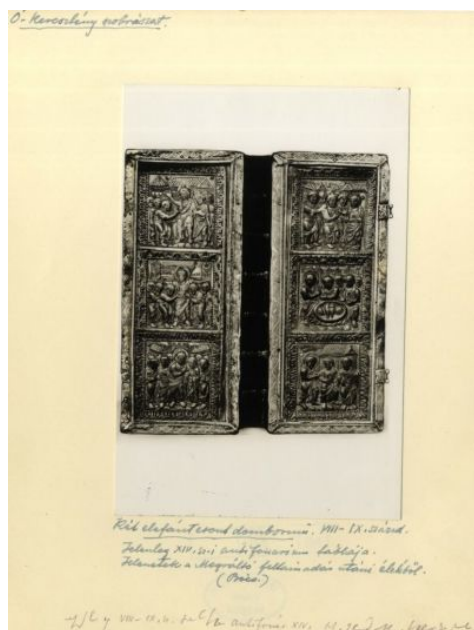 Ó-Keresztény szobrászat.
Két elefántcsont dombormű. VIII–IX. század.
Jelenleg XIV. sz-i antifonarium táblája.
Jelenetek a Megváltó feltámadás utáni életéből.
(Bécs.)
VIII–IX.
XIV.